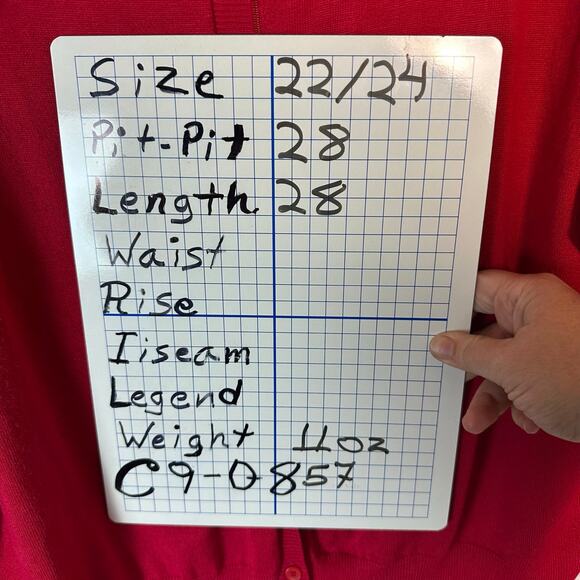 Size 22/24
Pit-Pit 28
Length 28
Waist
Rise
Iiseam
Legend
Weight 11oz
C9-0857